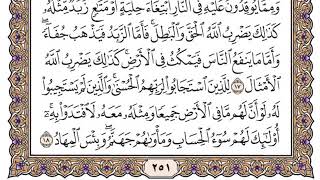 وَمِمَّا يُوقِدُونَ عَلَيْهِ فِي ٱلنَّارِ ٱبْتِغَآءَ حِلْيَةٍ أَوْ مَتَٰعٍ زَبَدٌ مِّثْلُهُۥ
كَذَٰلِكَ يَضْرِبُ ٱللَّهُ ٱلْحَقَّ وَٱلْبَٰطِلَ فَأَمَّا ٱلزَّبَدُ فَيَذْهَبُ جُفَآءً
وَأَمَّا مَا يَنفَعُ ٱلنَّاسَ فَيَمْكُثُ فِي ٱلْأَرْضِ كَذَٰلِكَ يَضْرِبُ ٱللَّهُ
ٱلْأَمْثَالَ ١٧ لِلَّذِينَ ٱسْتَجَابُوا۟ لِرَبِّهِمُ ٱلْحُسْنَىٰ وَٱلَّذِينَ لَمْ يَسْتَجِيبُوا۟
لَهُۥ لَوْ أَنَّ لَهُم مَّا فِي ٱلْأَرْضِ جَمِيعًا وَمِثْلَهُۥ مَعَهُۥ لَٱفْتَدَوْا۟ بِهِۦٓ
أُو۟لَٰٓئِكَ لَهُمْ سُوٓءُ ٱلْحِسَابِ وَمَأْوَىٰهُمْ جَهَنَّمُ وَبِئْسَ ٱلْمِهَادُ ١٨
٢٥١